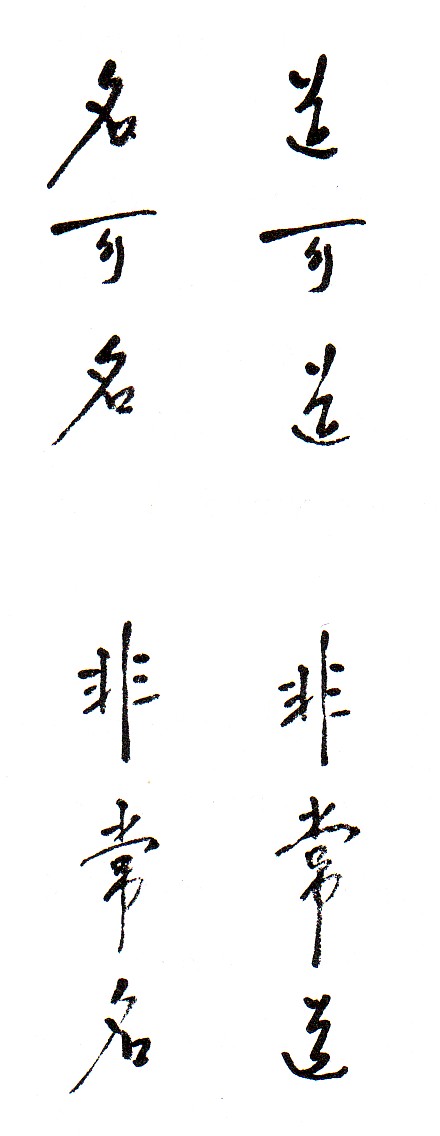 道可道 非常道
名可名 非常名